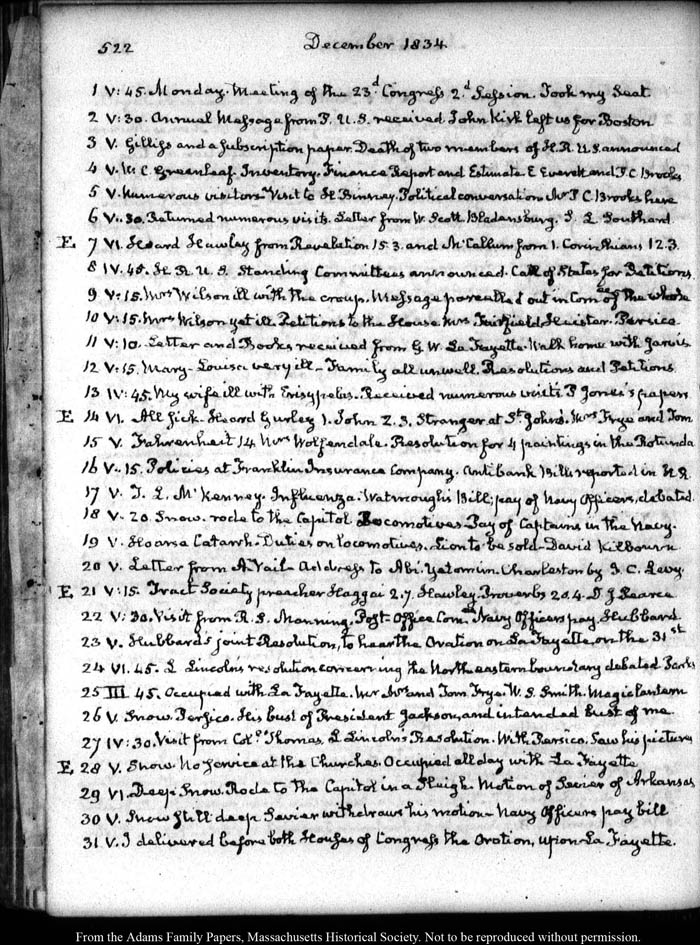 522 December 1834
1 V:45. Monday. Meeting of the 23.d Congress 2.d Session. Took my Seat
2 V:30. Annual Message from P. U.S. received. John Kirk left us for Boston
3 V. Gilliss and a subscription paper. Death of two members of H.R. U.S. announced
4 V. W. C. Greenleaf. Inventory. Finance Report and Estimate. E Everett and P.C. Brooks
5 V. Numerous visitors. Visit to H Binney. Political conversation. Mr P C Brooks here
6 V:30. Returned numerous visits. Letter from W. Scott. Bladensburg. S. L Southard
E 7 VI. Heard Hawley from Revelation 15.3. and McCallum from 1. Corinthians 12.3.
8 IV.45. H R U. S. Standing Committees announced. Call of States for Petitions
9 V:15. Mrs Wilson ill with the croup. Message parcelled out in Comee of the whole
10 V:15. Mrs Wilson yet ill. Petitions to the House. Mrs Fairfield. Persico
11 V:10. Letter and Books received from G W. La Fayette. Walk home with Jarvis
12 V:15. Mary-Louisa very ill- Family all unwell. Resolutions and Petitions
13 IV:45. My wife ill with Erisypelas. Received numerous visits. P Jones's papers
E 14 VI. All sick. Heard Gurley 1. John 2.3. Stranger at St Johns. Mrs Frye and Tom
15 V. Fahrenheit 14. Mrs Wolfendale. Resolution for 4 paintings in the Rotunda
16 V.15. Policies at Franklin Insurance Company. Antibank Bills reported in H.R
17 V. T. L. McKenney. Influenza. Watmough's Bill, pay of Navy Officers, debated
18 V.20. Snow. rode to the Capitol. Locomotives. Pay of Captains in the Navy.
19 V. Hoarse Catarrh. Duties on locomotives. Lion to be sold. David Kilbourn
20 V. Letter from A Vail- Address to Abi. Yatomin. Charleston by J. C. Levy.
E 21 V:15. Tract Society preacher Haggai 2.7. Hawley. Proverbs 20.4. D J Pearce
22 V:30. Visit from R. S. Manning. Post-Office Comee Navy Officers pay. Hubbard
23 V. Hubbard's joint Resolution, to hear the Oration on La Fayette, on the 31st
24 VI.45. L Lincoln's resolution concerning the North eastern boundary debated. Parks
25 III 45. Occupied with La Fayette. Mr Mrs and Tom Frye. W. S. Smith. Magic lantern
26 V. Snow. Persico. His bust of President Jackson, and intended bust of me
27 IV:30. Visit from Colo Thomas. L Lincoln's Resolution. With Persico. Saw his pictures
E 28 V. Snow. No service at the Churches. Occupied all day with La Fayette
29 VI. Deep Snow. Rode to the Capitol in a Sleigh. Motion of Sevier of Arkansas
30 V. Snow still deep. Sevier withdraws his motion. Navy Officers pay bill
31 V. I delivered before both Houses of Congress the Oration, upon La Fayette.
From the Adams Family Papers, Massachusetts Historical Society. Not to be reproduced without permission.